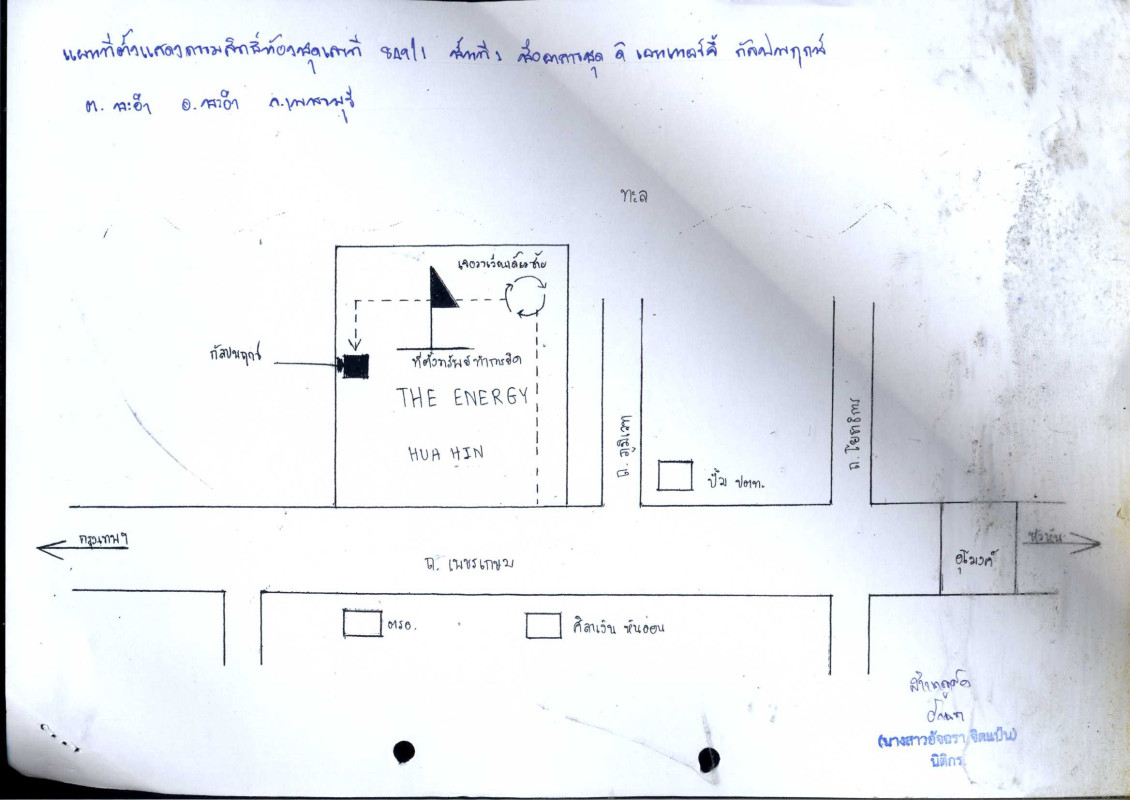 แผนที่ตั้งแสดงกรรมสิทธิ์ห้องชุดเลขที่ ชั้นที่ 2 ชื่ออาคารชุด ดิ เอนเนอร์จี้ กัลปพฤกษ์
ต. ชะอำ อ. ชะอำ จ. เพชรบุรี
ทะเล
เจอวงเวียนเลี้ยวซ้าย
กัลปพฤกษ์
ที่ตั้งทรัพย์ทำการยึด
THE ENERGY
HUA HIN
ถ. ภูมิเวท
ถ. โยธาธิการ
ปั๊ม ปตท.
กรุงเทพฯ
หัวหิน
ถ. เพชรเกษม
อุโมงค์
ตรอ.
ศิลาเงิน หินอ่อน
สำเนาถูกต้อง
(นางสาวอัจฉรา จิตแป้น)
นิติกร